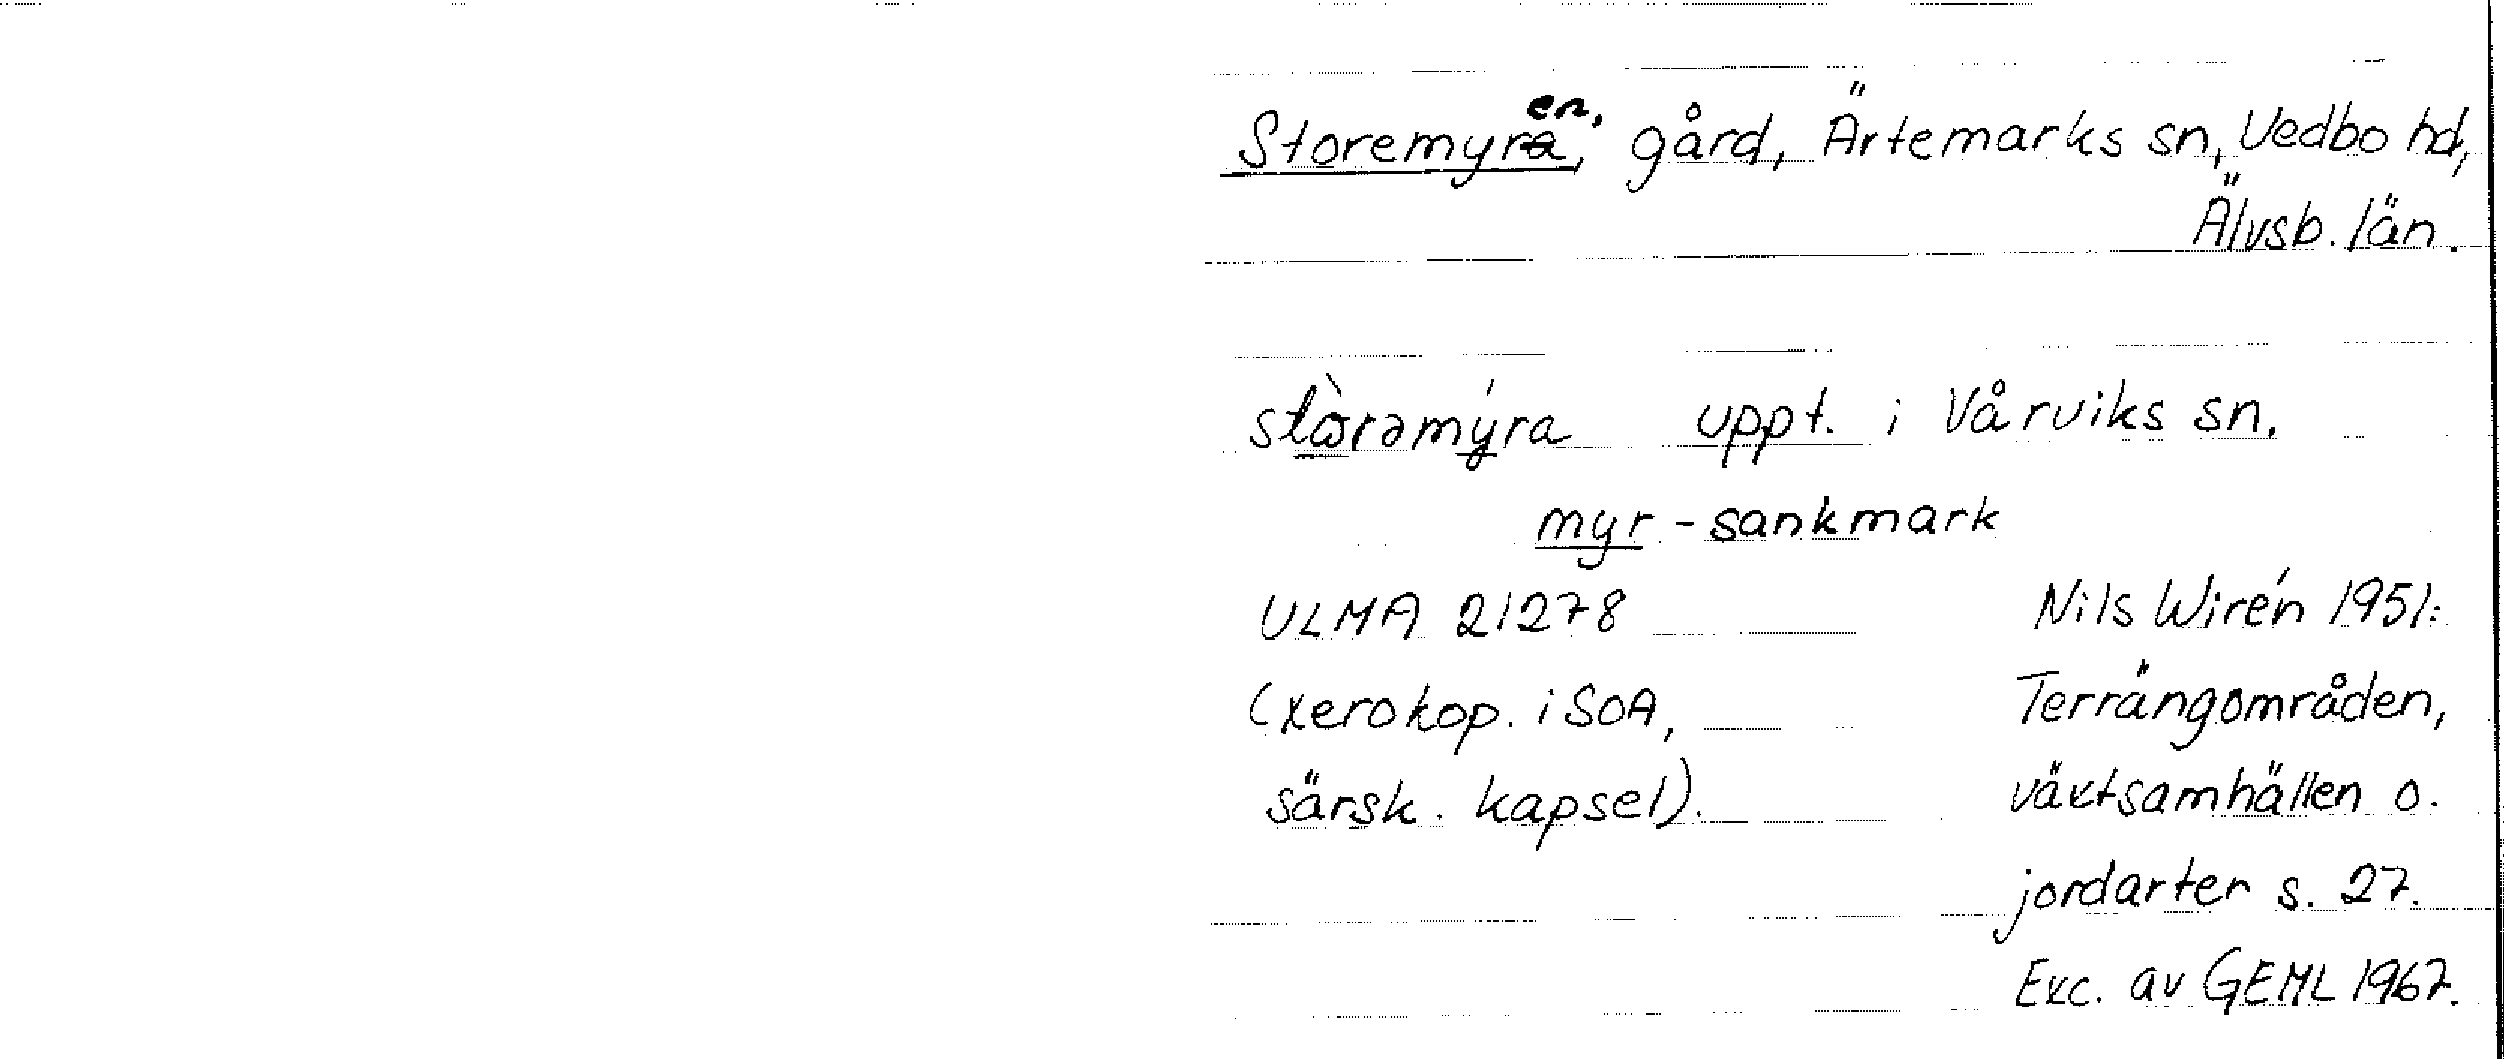 Storemyren, gård, Ärtemarks sn, Vedbo hd,
Älvsb. län.
stòrəmýra uppt. i Vårviks sn.
myr - sankmark
ULMA 21278 Nils Wirén 1951:
(xerokop. i SOA, Terrängområden,
särsk. kapsel). växtsamhällen o.
jordarter s. 27.
Exc. av GEML 1967.